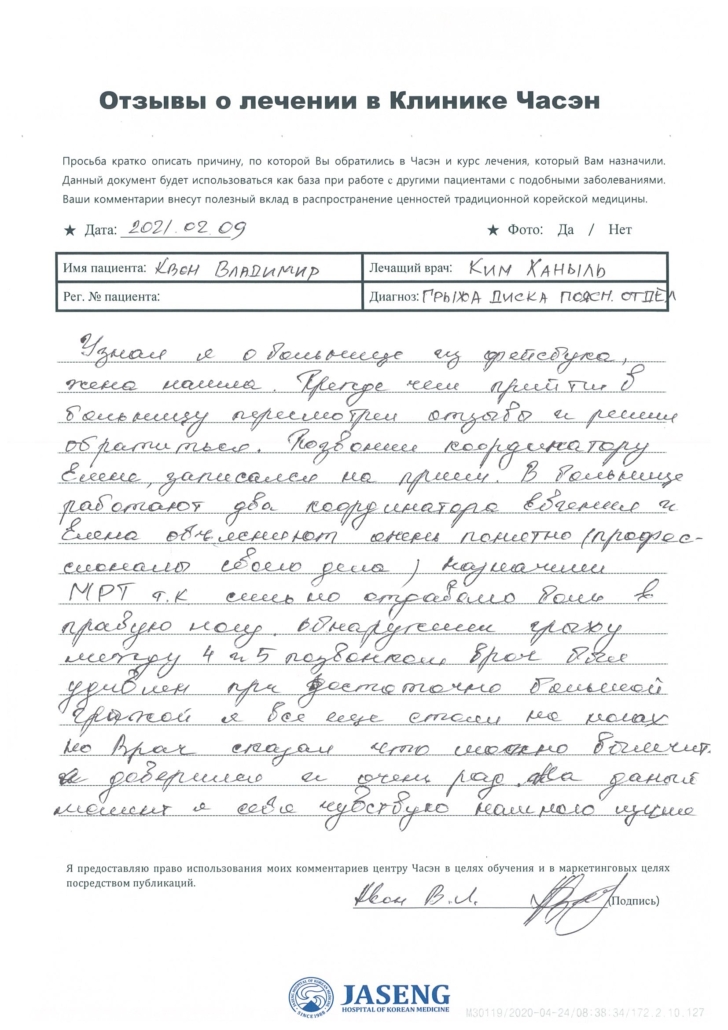 Отзывы о лечении в Клинике Часэн
Просьба кратко описать причину, по которой Вы обратились в Часэн и курс лечения, который Вам назначили.
Данный документ будет использоваться как база при работе с другими пациентами с подобными заболеваниями.
Ваши комментарии внесут полезный вклад в распространение ценностей традиционной корейской медицины.
★ Дата: 2021.02.09 ★ Фото: Да / Нет
Имя пациента: Квон Владимир Лечащий врач: Ким Ханыль
Рег. № пациента: Диагноз: Грыжа диска поясн. отдел
Узнал я о больнице из фейсбука,
жена нашла. Прежде чем прийти в
больницу пересмотрел отзывы и решил
обратиться. Позвонил координатору
Елене, записался на прием. В больнице
работают два координатора Евгения и
Елена объясняют очень понятно (профес-
сионалы своего дела) назначили
МРТ т.к сильно отдавало боль в
правую ногу. обнаружили грыжу
между 4 и 5 позвонком врач был
удивлен при достаточно большой
грыжой я все еще стоял на ногах
но Врач сказал что можно вылечит.
я доверился и очень рад. На даный
момент я себя чувствую намного лучше
Я предоставляю право использования моих комментариев центру Часэн в целях обучения и в маркетинговых целях
посредством публикаций.
Квон В.Л. (Подпись)
JASENG
HOSPITAL OF KOREAN MEDICINE
SINCE 1988
M30119/2020-04-24/08:38:34/172.2.10.127